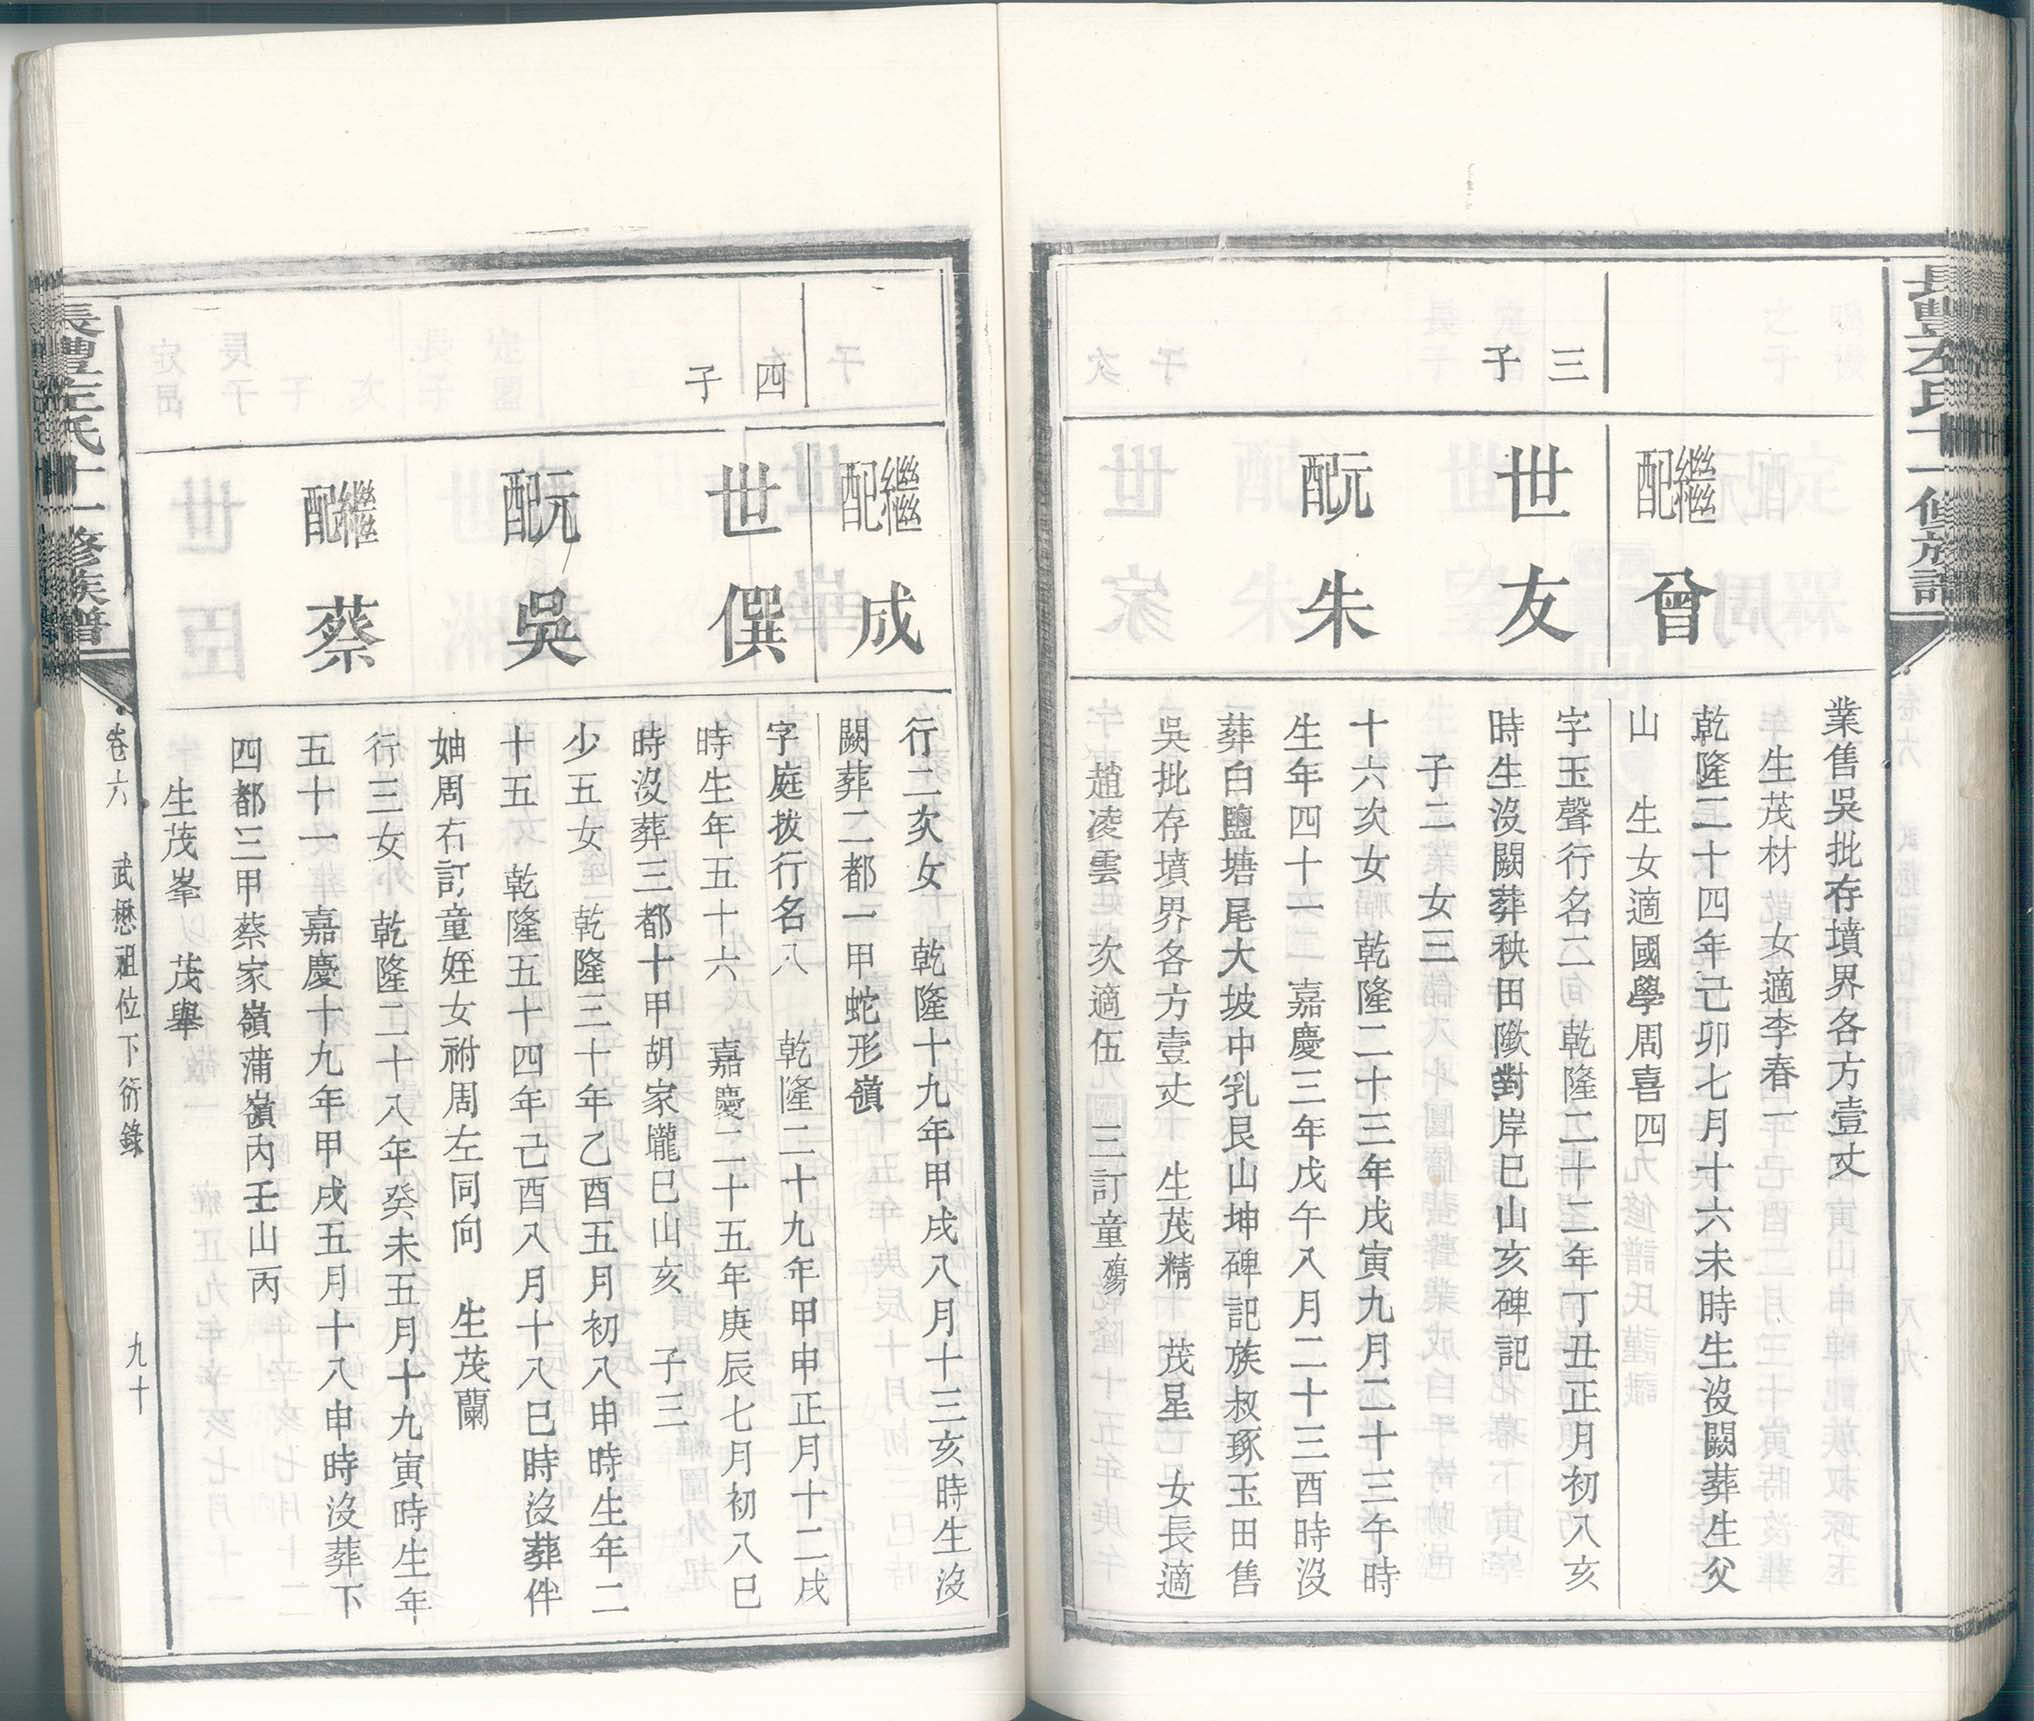 長豊左氏十一修族譜
業售吳批存墳界各方壹丈
生茂材 女適李春一
繼配 曾
乾隆二十四年己卯七月十六未時生沒闕葬生父
山 生女適國學周喜四
三子
世友
字玉聲行名二 乾隆二十二年丁丑正月初八亥
時生沒闕葬秧田墈對岸巳山亥碑記
子二 女三
元配 朱
十六次女 乾隆二十三年戊寅九月二十三午時
生年四十一 嘉慶三年戊午八月二十三酉時沒
葬白鹽塘尾大坡中乳艮山坤碑記族叔琢玉田售
吳批存墳界各方壹丈 生茂精 茂星 女長適
趙凌雲 次適伍 三訂童殤
繼配 成
行二次女 乾隆十九年甲戌八月十三亥時生沒
闕葬二都一甲蛇形嶺
四子
世僎
字庭拔行名八 乾隆二十九年甲申正月十二戌
時生年五十六 嘉慶二十五年庚辰七月初八巳
時沒葬三都十甲胡家隴巳山亥 子三
元配 吳
少五女 乾隆三十年乙酉五月初八申時生年二
十五 乾隆五十四年己酉八月十八巳時沒葬伴
妯周右訂童姪女祔周左同向 生茂蘭
繼配 蔡
行三女 乾隆二十八年癸未五月十九寅時生年
五十一 嘉慶十九年甲戌五月十八申時沒葬下
四都三甲蔡家嶺蒲嶺內壬山丙
生茂峯 茂舉
長豊左氏十一修族譜
卷六 武懋祖位下衍錄 九十